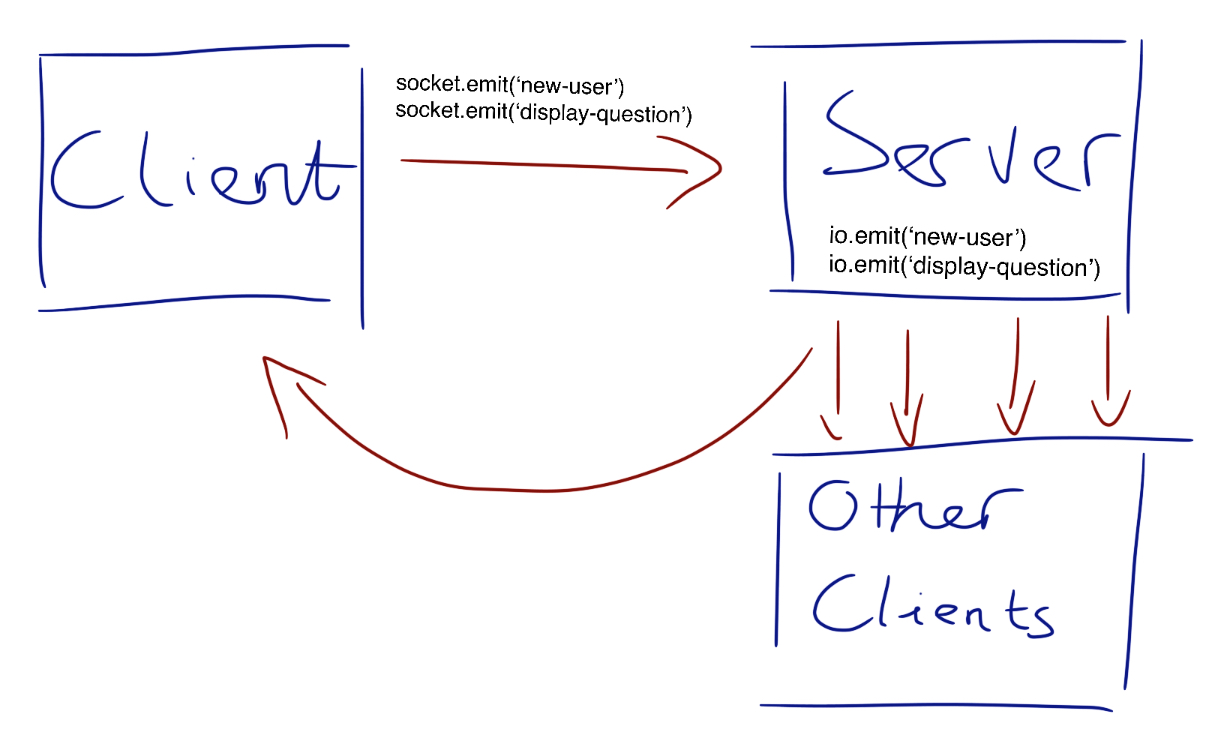 Client
socket.emit(‘new-user’)
socket.emit(‘display-question’)
Server
io.emit(‘new-user’)
io.emit(‘display-question’)
Other
Clients